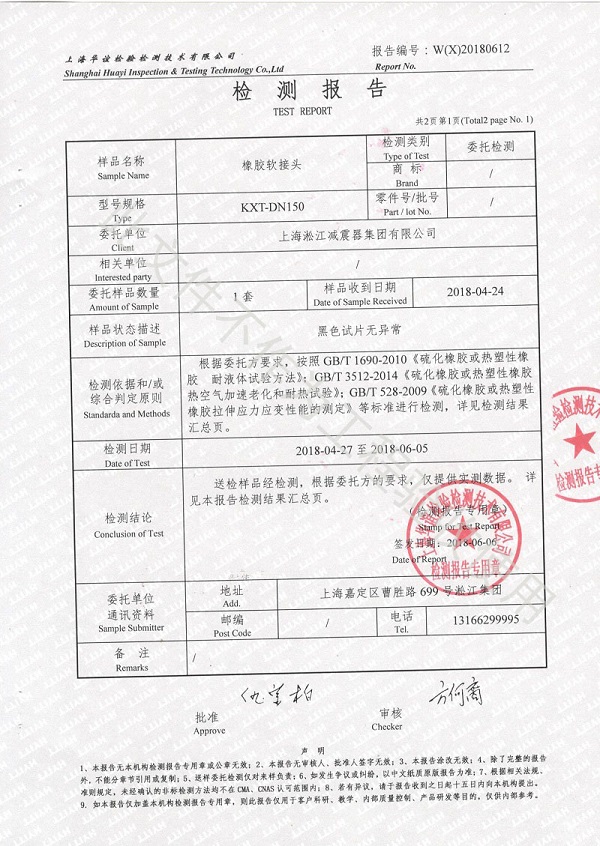 上海华谊检验检测技术有限公司
Shanghai Huayi Inspection & Testing Technology Co.,Ltd
报告编号: W(X)20180612
Report No.
检测报告
TEST REPORT
共2页第1页(Total2 page No. 1)
样品名称 橡胶软接头 检测类别 委托检测
Sample Name Type of Test
商标 /
Brand
型号规格 KXT-DN150 零件号/批号 /
Type Part / lot No.
委托单位 上海淞江减震器集团有限公司
Client
相关单位 /
Interested party
委托样品数量 1 套 样品收到日期 2018-04-24
Amount of Sample Date of Sample Received
样品状态描述 黑色试片无异常
Description of Sample
检测依据和/或
综合判定原则
Standarda and Methods
根据委托方要求，按照 GB/T 1690-2010《硫化橡胶或热塑性橡
胶 耐液体试验方法》; GB/T 3512-2014《硫化橡胶或热塑性橡胶
热空气加速老化和耐热试验》; GB/T 528-2009《硫化橡胶或热塑性
橡胶拉伸应力应变性能的测定》等标准进行检测，详见检测结果
汇总页。
检测日期 2018-04-27 至 2018-06-05
Date of Test
检测结论
Conclusion of Test
送检样品经检测，根据委托方的要求，仅提供实测数据。 详
见本报告检测结果汇总页。
(检测报告专用章)
Stamp for Test Report
签发日期: 2018-06-06
Date of Report
检测报告专用章
委托单位
通讯资料
Sample Submitter
地址 上海嘉定区曹胜路 699 号淞江集团
Add.
邮编 / 电话 13166299995
Post Code Tel.
备 注 /
Remarks
批准 审核
Approve Checker
声 明
1、本报告无本机构检测报告专用章或公章无效；2、本报告无审核人、批准人签字无效；3、本报告涂改无效；4、除了完整的报告
外，不能分章节引用或复制；5、送样委托检测仅对来样负责；6、如发生争议或纠纷，以中文纸质原版报告为准；7、根据相关法规、
准则规定，未经确认的非标检测方法均不在 CMA、CNAS 认可范围内；8、若有异议，请于报告收到之日起十五日内向本机构提出。
9. 如本报告仅加盖本机构检测报告专用章，则此报告仅用于客户科研、教学、内部质量控制、产品研发等目的，仅供内部参考。